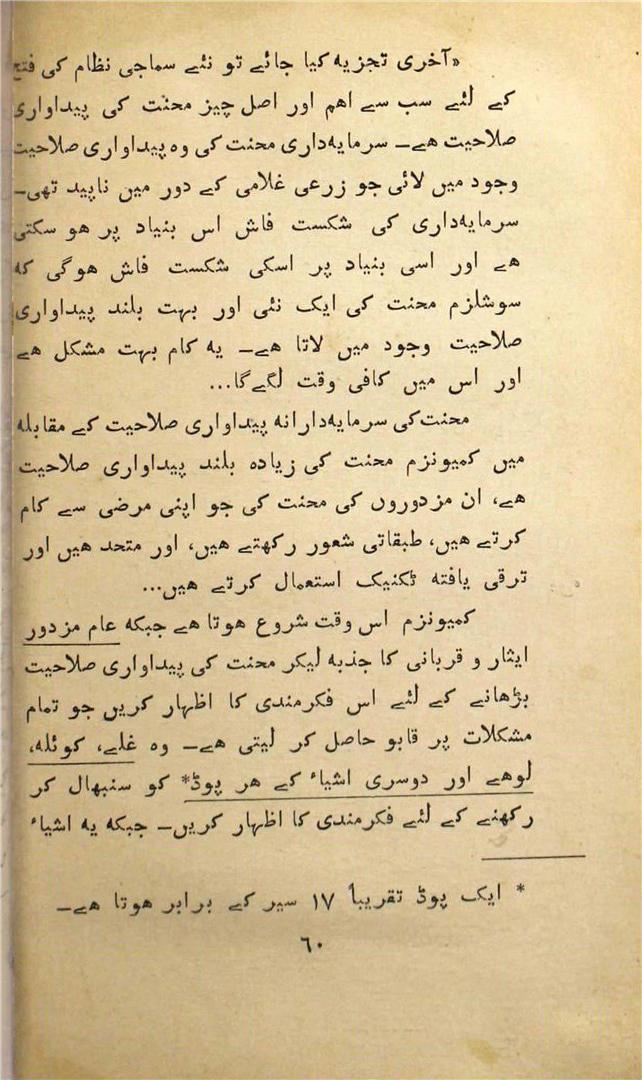 «آخری تجزیه کیا جائے تو نئے سماجی نظام کی فتح
کے لئے سب سے اهم اور اصل چیز محنت کی پیداواری
صلاحیت هے۔ سرمایهداری محنت کی وه پیداواری صلاحیت
وجود میں لائی جو زرعی غلامی کے دور مین ناپید تھی۔
سرمایهداری کی شکست فاش اس بنیاد پر هو سکتی
هے اور اسی بنیاد پر اسکی شکست فاش هوگی که
سوشلزم محنت کی ایک نئی اور بہت بلند پیداواری
صلاحیت وجود میں لاتا هے۔ یه کام بہت مشکل هے
اور اس میں کافی وقت لگےگا...
محنت کی سرمایهدارانه پیداواری صلاحیت کے مقابله
میں کمیونزم محنت کی زیاده بلند پیداواری صلاحیت
هے، ان مزدوروں کی محنت کی جو اپنی مرضی سے کام
کرتے هیں، طبقاتی شعور رکھتے هیں، اور متحد هیں اور
ترقی یافته ٹکنیک استعمال کرتے هیں...
کمیونزم اس وقت شروع هوتا هے جبکه عام مزدور
ایثار و قربانی کا جذبه لیکر محنت کی پیداواری صلاحیت
بڑھانے کے لئے اس فکرمندی کا اظہار کریں جو تمام
مشکلات پر قابو حاصل کر لیتی هے۔ وه غلے، کوئله،
لوهے اور دوسری اشیاء کے هر پوڈ* کو سنبھال کر
رکھنے کے لئے فکرمندی کا اظہار کریں۔ جبکه یه اشیاء
* ایک پوڈ تقریباً ۱۷ سیر کے برابر هوتا هے۔
٦٠